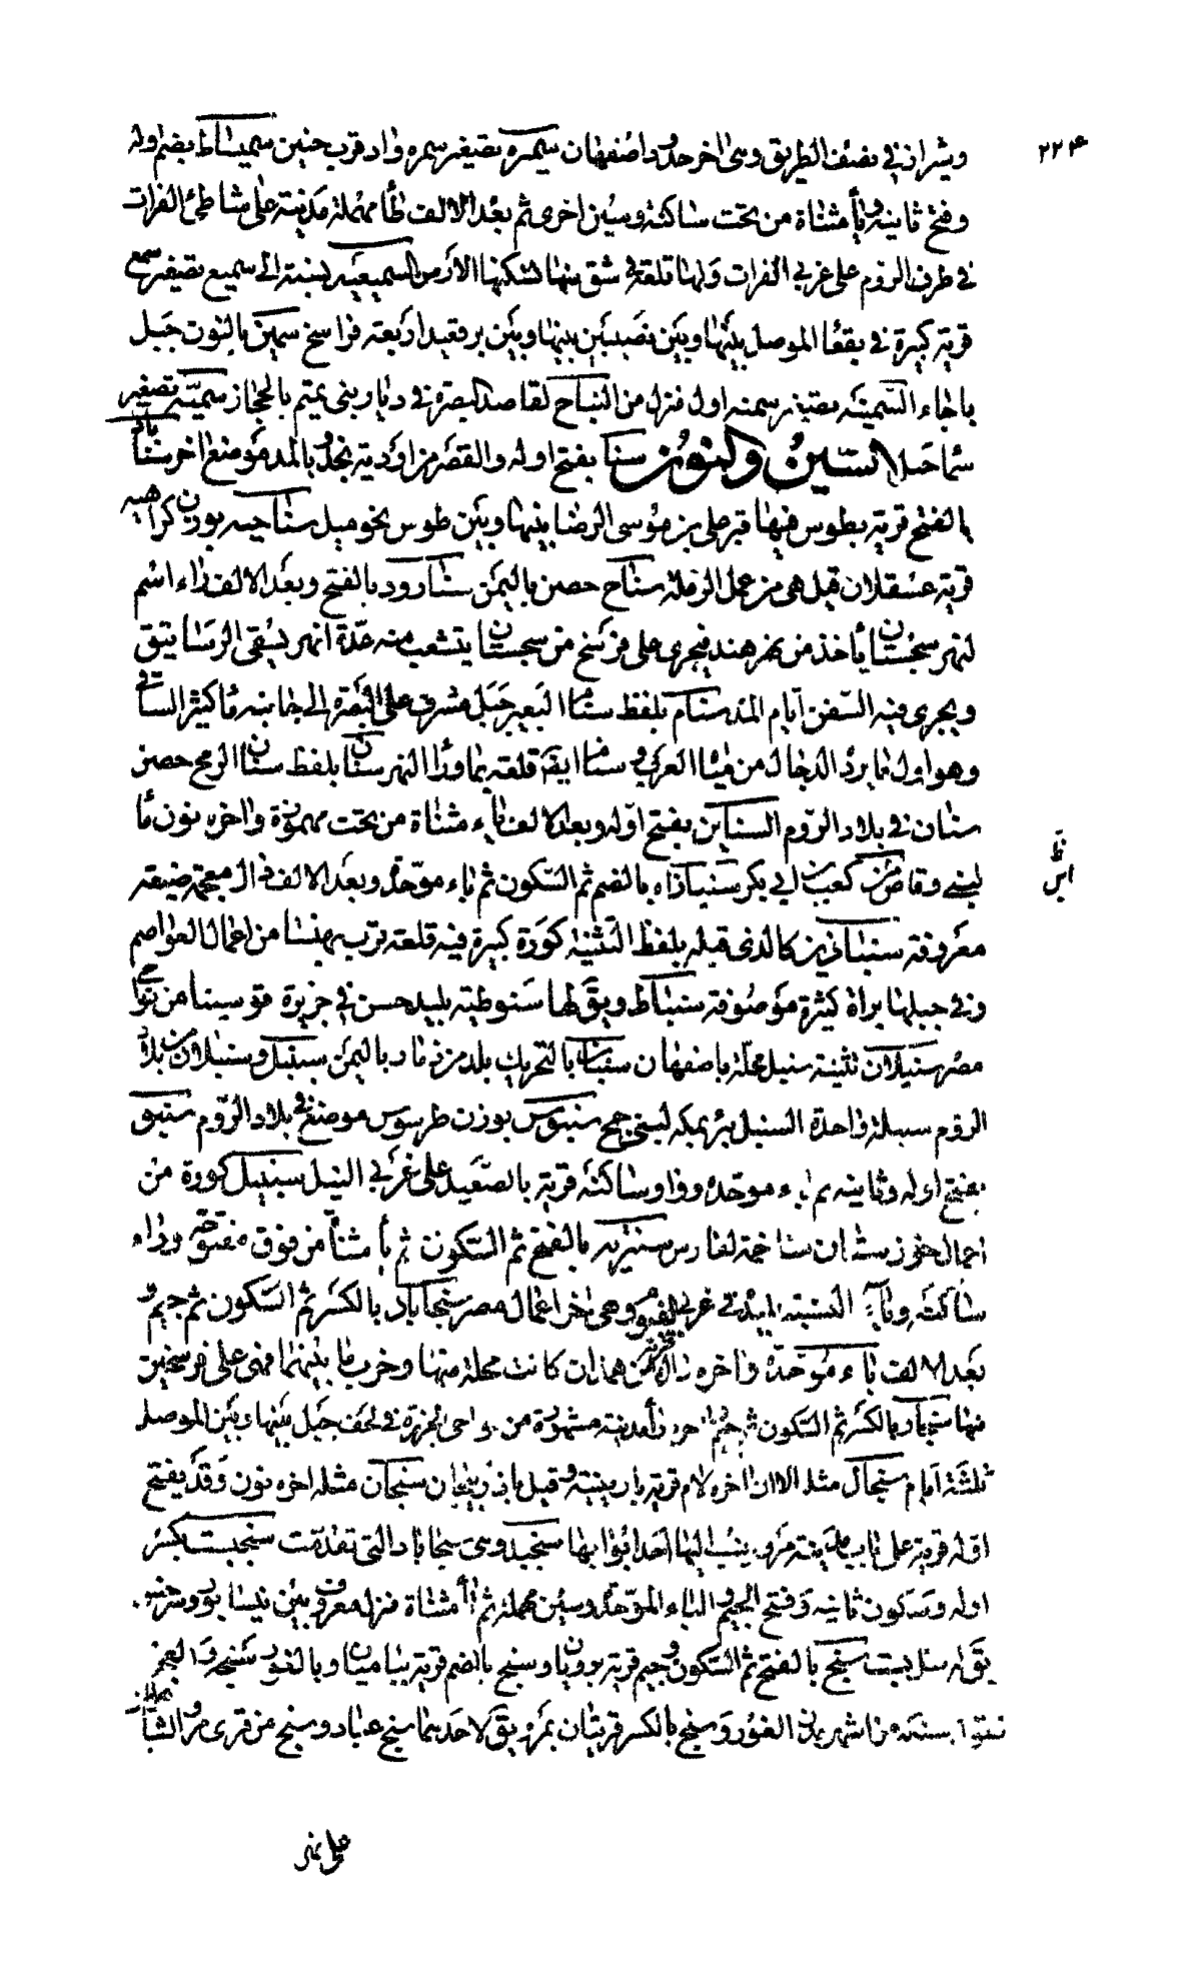 ٢٢٤
وشيراز في نصف الطريق وهي اخر حدود اصفهان سميرة تصغير سمره واد قرب حنين سميساط بضم اوله
وفتح ثانيه وياء مثناة من تحت ساكنة وسين اخرى ثم بعد الالف طاء مهملة مدينة على شاطئ الفرات
في طرف الروم على غربي الفرات ولها قلعة في شق منها تسكنها الارمن السميعية نسبة الى سميع تصغير سمع
قرية كبيرة في بقعا الموصل بينها وبين نصيبين بينها وبين برقعيد اربعة فراسخ سمين بالنون جبل
باجاء السمينة تصغير سمنه اول منزل من النباج لقاصد البصرة في ديار بني تميم بالحجاز سمية تصغير
سما جبل السين والنون سنا بفتح اوله والقصر من اودية نجد وبالمد موضع اخر سناباد
بالفتح قرية بطوس فيها قبر على بن موسى الرضا بينها وبين طوس نحو ميل سناجيه بوزن كراهيه
قرية عسقلان قيل هي من عمل الرملة سناح حصن باليمن سنارود بالفتح وبعد الالف راء اسم
لنهر سجستان يأخذ من نهر هندمند فيجرى على فرسخ من سجستان يتشعب منه عدة انهر يسقى الرساتيق
ويجرى فيه السفن ايام المد سنام بلفظ سنام البعير جبل مشرف على البصرة الى جانبه ماء كثير السافي
وهو اول ما يرد الدجال من مياه العرب و سنام ايضا قلعة بما وراء النهر سنان بلفظ سنان الرمح حصن
سنان في بلاد الروم السناين بفتح اوله وبعد الالف ياء مثناة من تحت مهموزة واخره نون ماء
لبنى وقاص من كعب بن ابي بكر سنباذاه بالضم ثم السكون ثم باء موحدة وبعد الالف ذال معجمة ضيعة
معروفة سنباذين كالذى قبله بلفظ التثنية كورة كبيرة فيه قلعة قرب بهنسا من اعمال العواصم
وفي جبلها بزاة كثيرة موصوفة سنباط ويق لها سنوطية بليد حسن في جزيرة قوسينا من نواحي
مصر سنبلان تثنية سنبل محلة باصفهان سنبان بالتحريك بلد من ذمار باليمن سنبل وسنبلان من بلاد
الروم سنبلة واحدة السنبل بئر بمكه لبنى جمح سنبوس بوزن طرسوس موضع في بلاد الروم سنبو
بفتح اوله وثانيه ثم باء موحدة وواو ساكنة قرية بالصعيد على غربي النيل سنبيل كورة من
اعمال خوزستان متاخمة لفارس سنتريه بالفتح ثم السكون ثم تاء مثناة من فوق مفتوحة وراء
ساكنة وياء النسبة بليدة في غربي الفيوم وهى اخر اعمال مصر سنجاباد بالكسر ثم السكون ثم جيم و
بعد الالف باء موحدة واخره ذال من همذان كانت محلة منها وخرب ما بينهما فهى على فرسخين
منها سنجار بالكسر ثم السكون ثم جيم اخره راء مدينة مشهورة من نواحى الجزيرة في لحف جبل بينها وبين الموصل
ثلثة ايام سنجال مثله الا ان اخره لام قرية بارمينية وقيل باذربيجان سنجان مثله اخره نون وقد يفتح
اوله قرية على باب مدينة مرو ينسب اليها احد ابوابها سنجبد وهي سنجاباد التى تقدمت سنجبست بكسر
اوله وسكون ثانيه وفتح الجيم و الباء الموحدة وسين مهملة ثم تاء مثناة منزل معروف بين نيسابور وسرخس
يق له سنك بست سنج بالفتح ثم السكون وجيم قرية بروذبار وسنج بالضم قرية بباميان وبالغور سنجه والعجم
من اشهر مدن الغور وسنج بالكسر قريتان بمرو يق لاحدهما سنج عباد وسنج من قرى مرو الشاهجان
على نهر